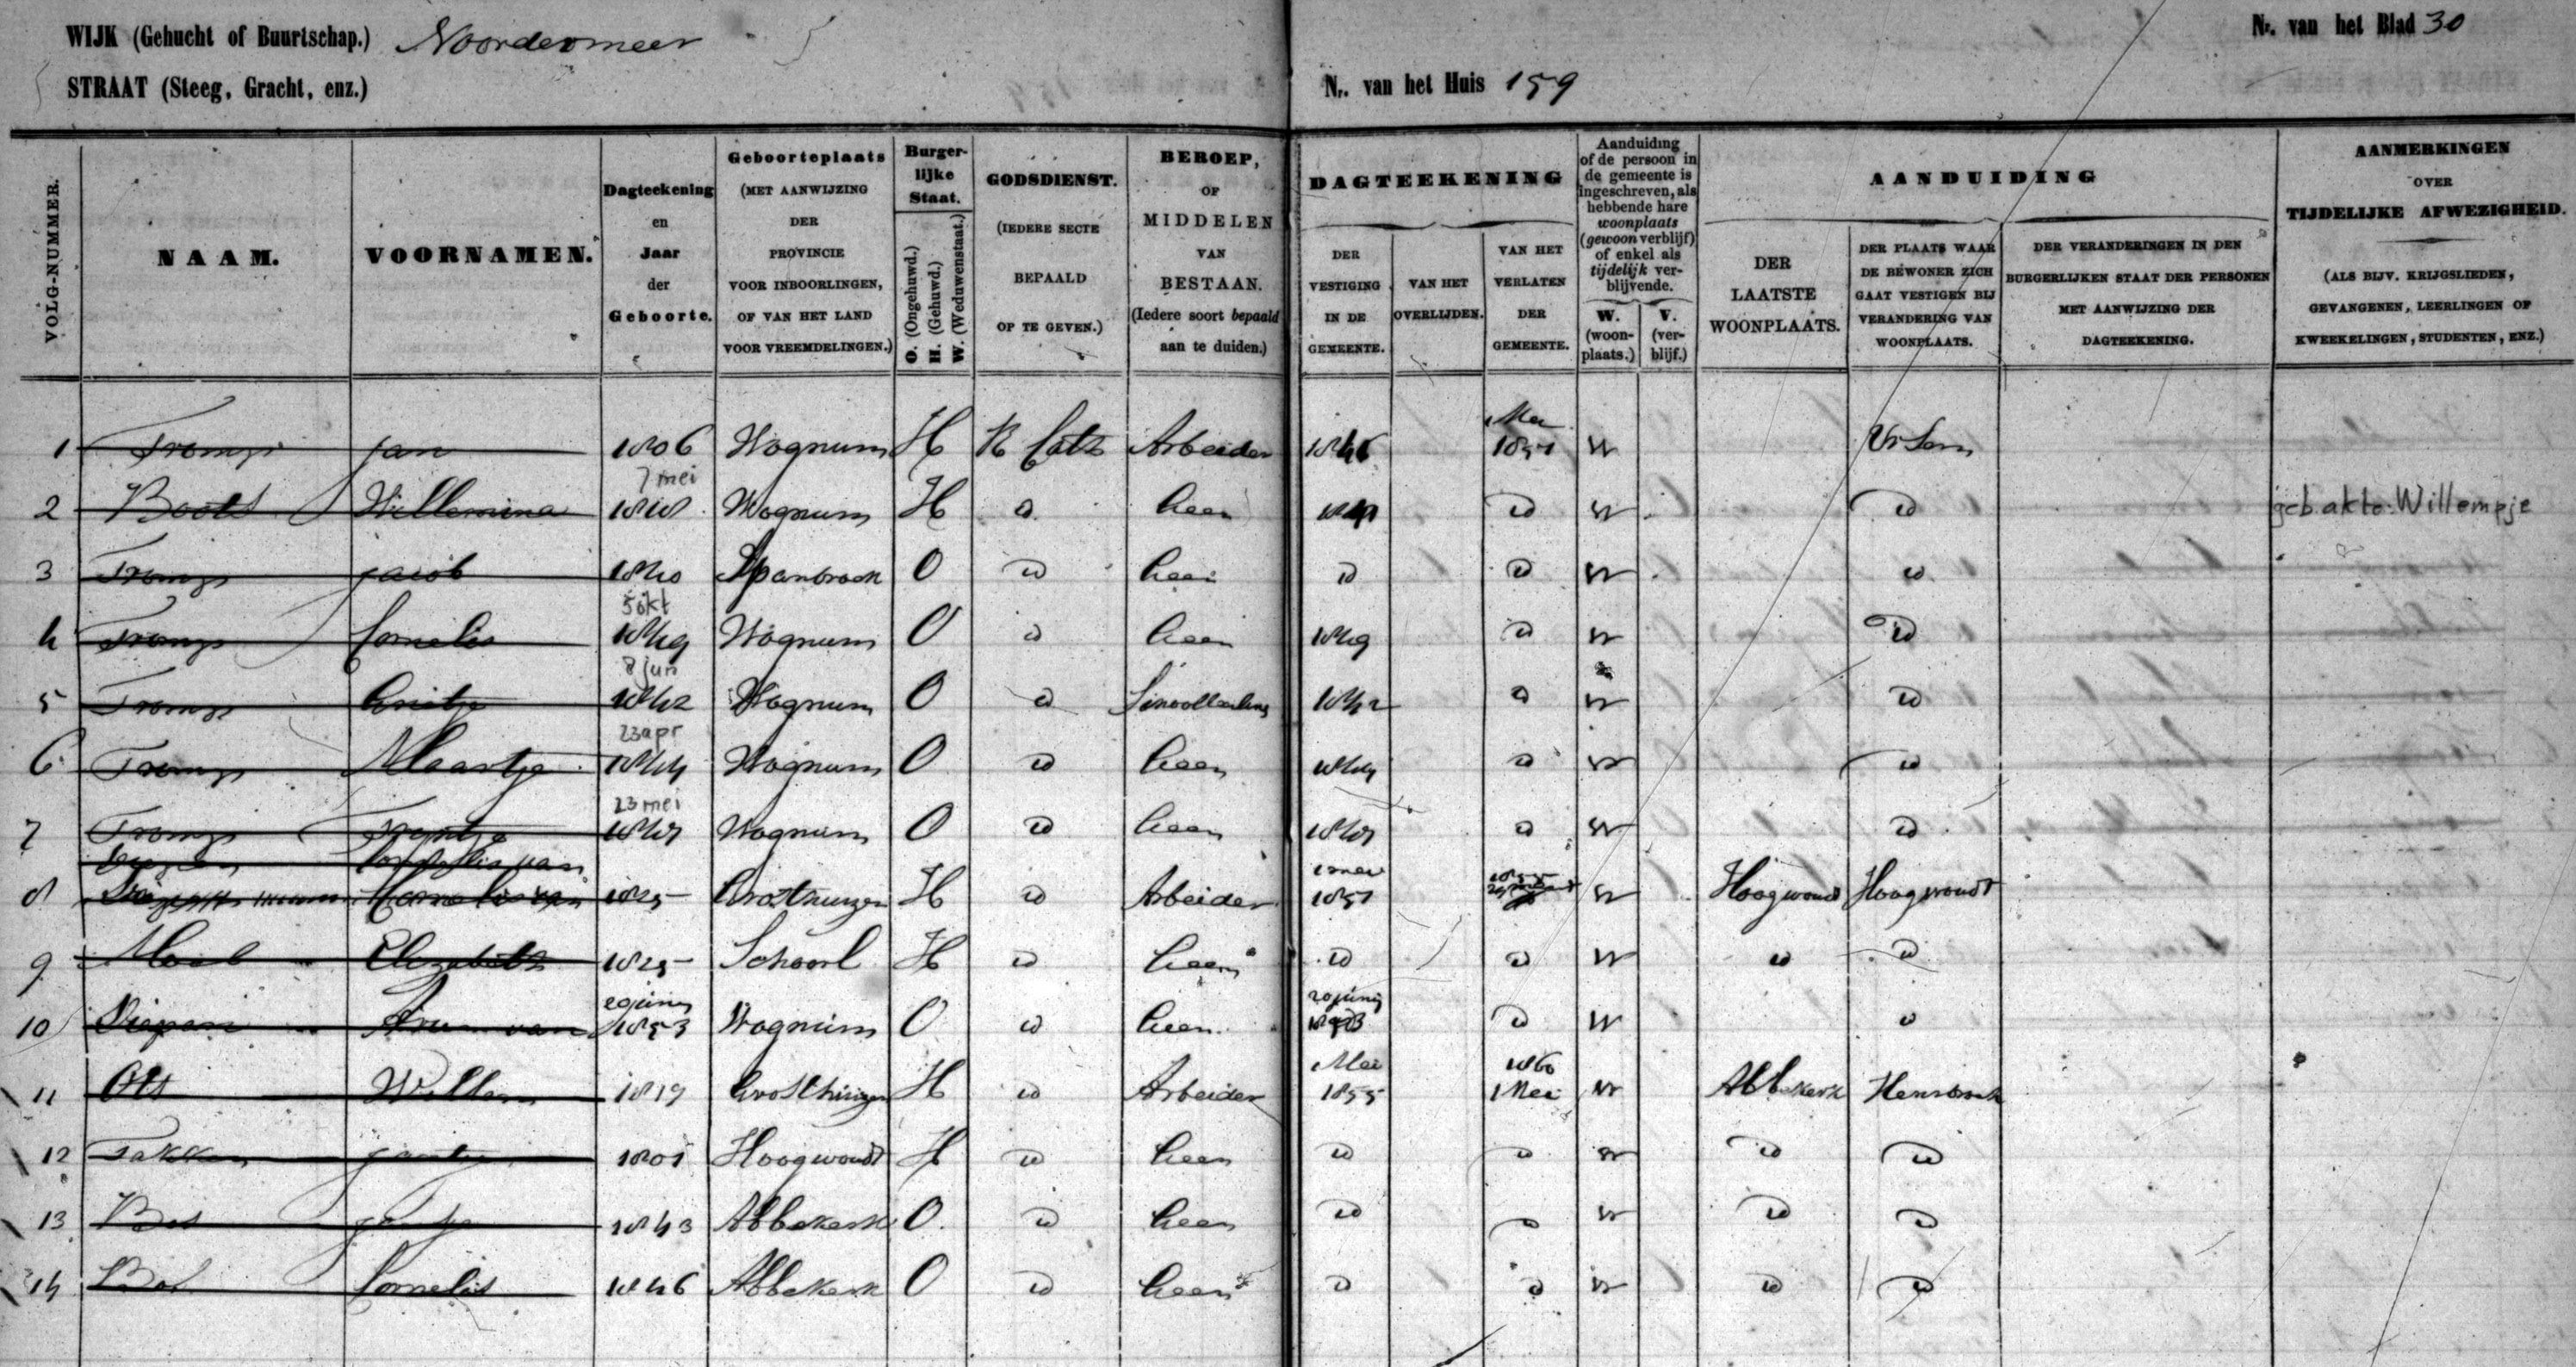 WIJK (Gehucht of Buurtschap.) Noordermeer
Nr. van het Blad 30
STRAAT (Steeg, Gracht, enz.)
Nr. van het Huis 159
VOLG-NUMMER.
NAAM.
VOORNAMEN.
Dagteekening en Jaar der Geboorte.
Geboorteplaats (MET AANWIJZING DER PROVINCIE VOOR INBOORLINGEN, OF VAN HET LAND VOOR VREEMDELINGEN.)
Burger-lijke Staat.
O. (Ongehuwd.) H. (Gehuwd.) W. (Weduwenstaat.)
GODSDIENST. (IEDERE SECTE BEPAALD OP TE GEVEN.)
BEROEP, OF MIDDELEN VAN BESTAAN. (Iedere soort bepaald aan te duiden.)
DAGTEEKENING
DER VESTIGING IN DE GEMEENTE.
VAN HET OVERLIJDEN.
VAN HET VERLATEN DER GEMEENTE.
Aanduiding of de persoon in de gemeente is ingeschreven, als hebbende hare woonplaats (gewoon verblijf) of enkel als tijdelijk ver-blijvende.
W. (woon-plaats.)
V. (ver-blijf.)
AANDUIDING
DER LAATSTE WOONPLAATS.
DER PLAATS WAAR DE BEWONER ZICH GAAT VESTIGEN BIJ VERANDERING VAN WOONPLAATS.
DER VERANDERINGEN IN DEN BURGERLIJKEN STAAT DER PERSONEN MET AANWIJZING DER DAGTEEKENING.
AANMERKINGEN OVER TIJDELIJKE AFWEZIGHEID. (ALS BIJV. KRIJGSLIEDEN, GEVANGENEN, LEERLINGEN OF KWEEKELINGEN, STUDENTEN, ENZ.)
1 Tromp jan 1806 Wognum H R Cath Arbeider 1846 Mei W Ursem
2 Boots Willemina 7 mei 1818 Wognum H d Geen d W d geb. akte: Willempje
3 Tromp jacob 1840 Spanbroek O d Geen d d W d
4 Tromp Cornelis 5 okt 1849 Wognum O d Geen 1849 d W d
5 Tromp Grietje 8 jun 1842 Wognum O d 1842 d W d
6 Tromp Maartje 23 apr 1844 Wognum O d Geen 1844 d W d
7 Tromp Trijntje 23 mei Wognum O d Geen d W d
8 1825 H d Arbeider W Hoogwoud Hoogwoudt
9 Elizabeth 1825 Schoorl H d Geen d d W d d
10 Diepen van 1853 Wognum O d Geen d W d
11 Ots Willem 1819 H d Arbeider Mei 1855 1860 1 Mei W Abbekerk Hensbroek
12 Takken jantje 1801 Hoogwoudt H d Geen d d W d d
13 Bot 1843 Abbekerk O. d Geen d d W d d
14 Bot Cornelis 1846 Abbekerk O d Geen d d W d d